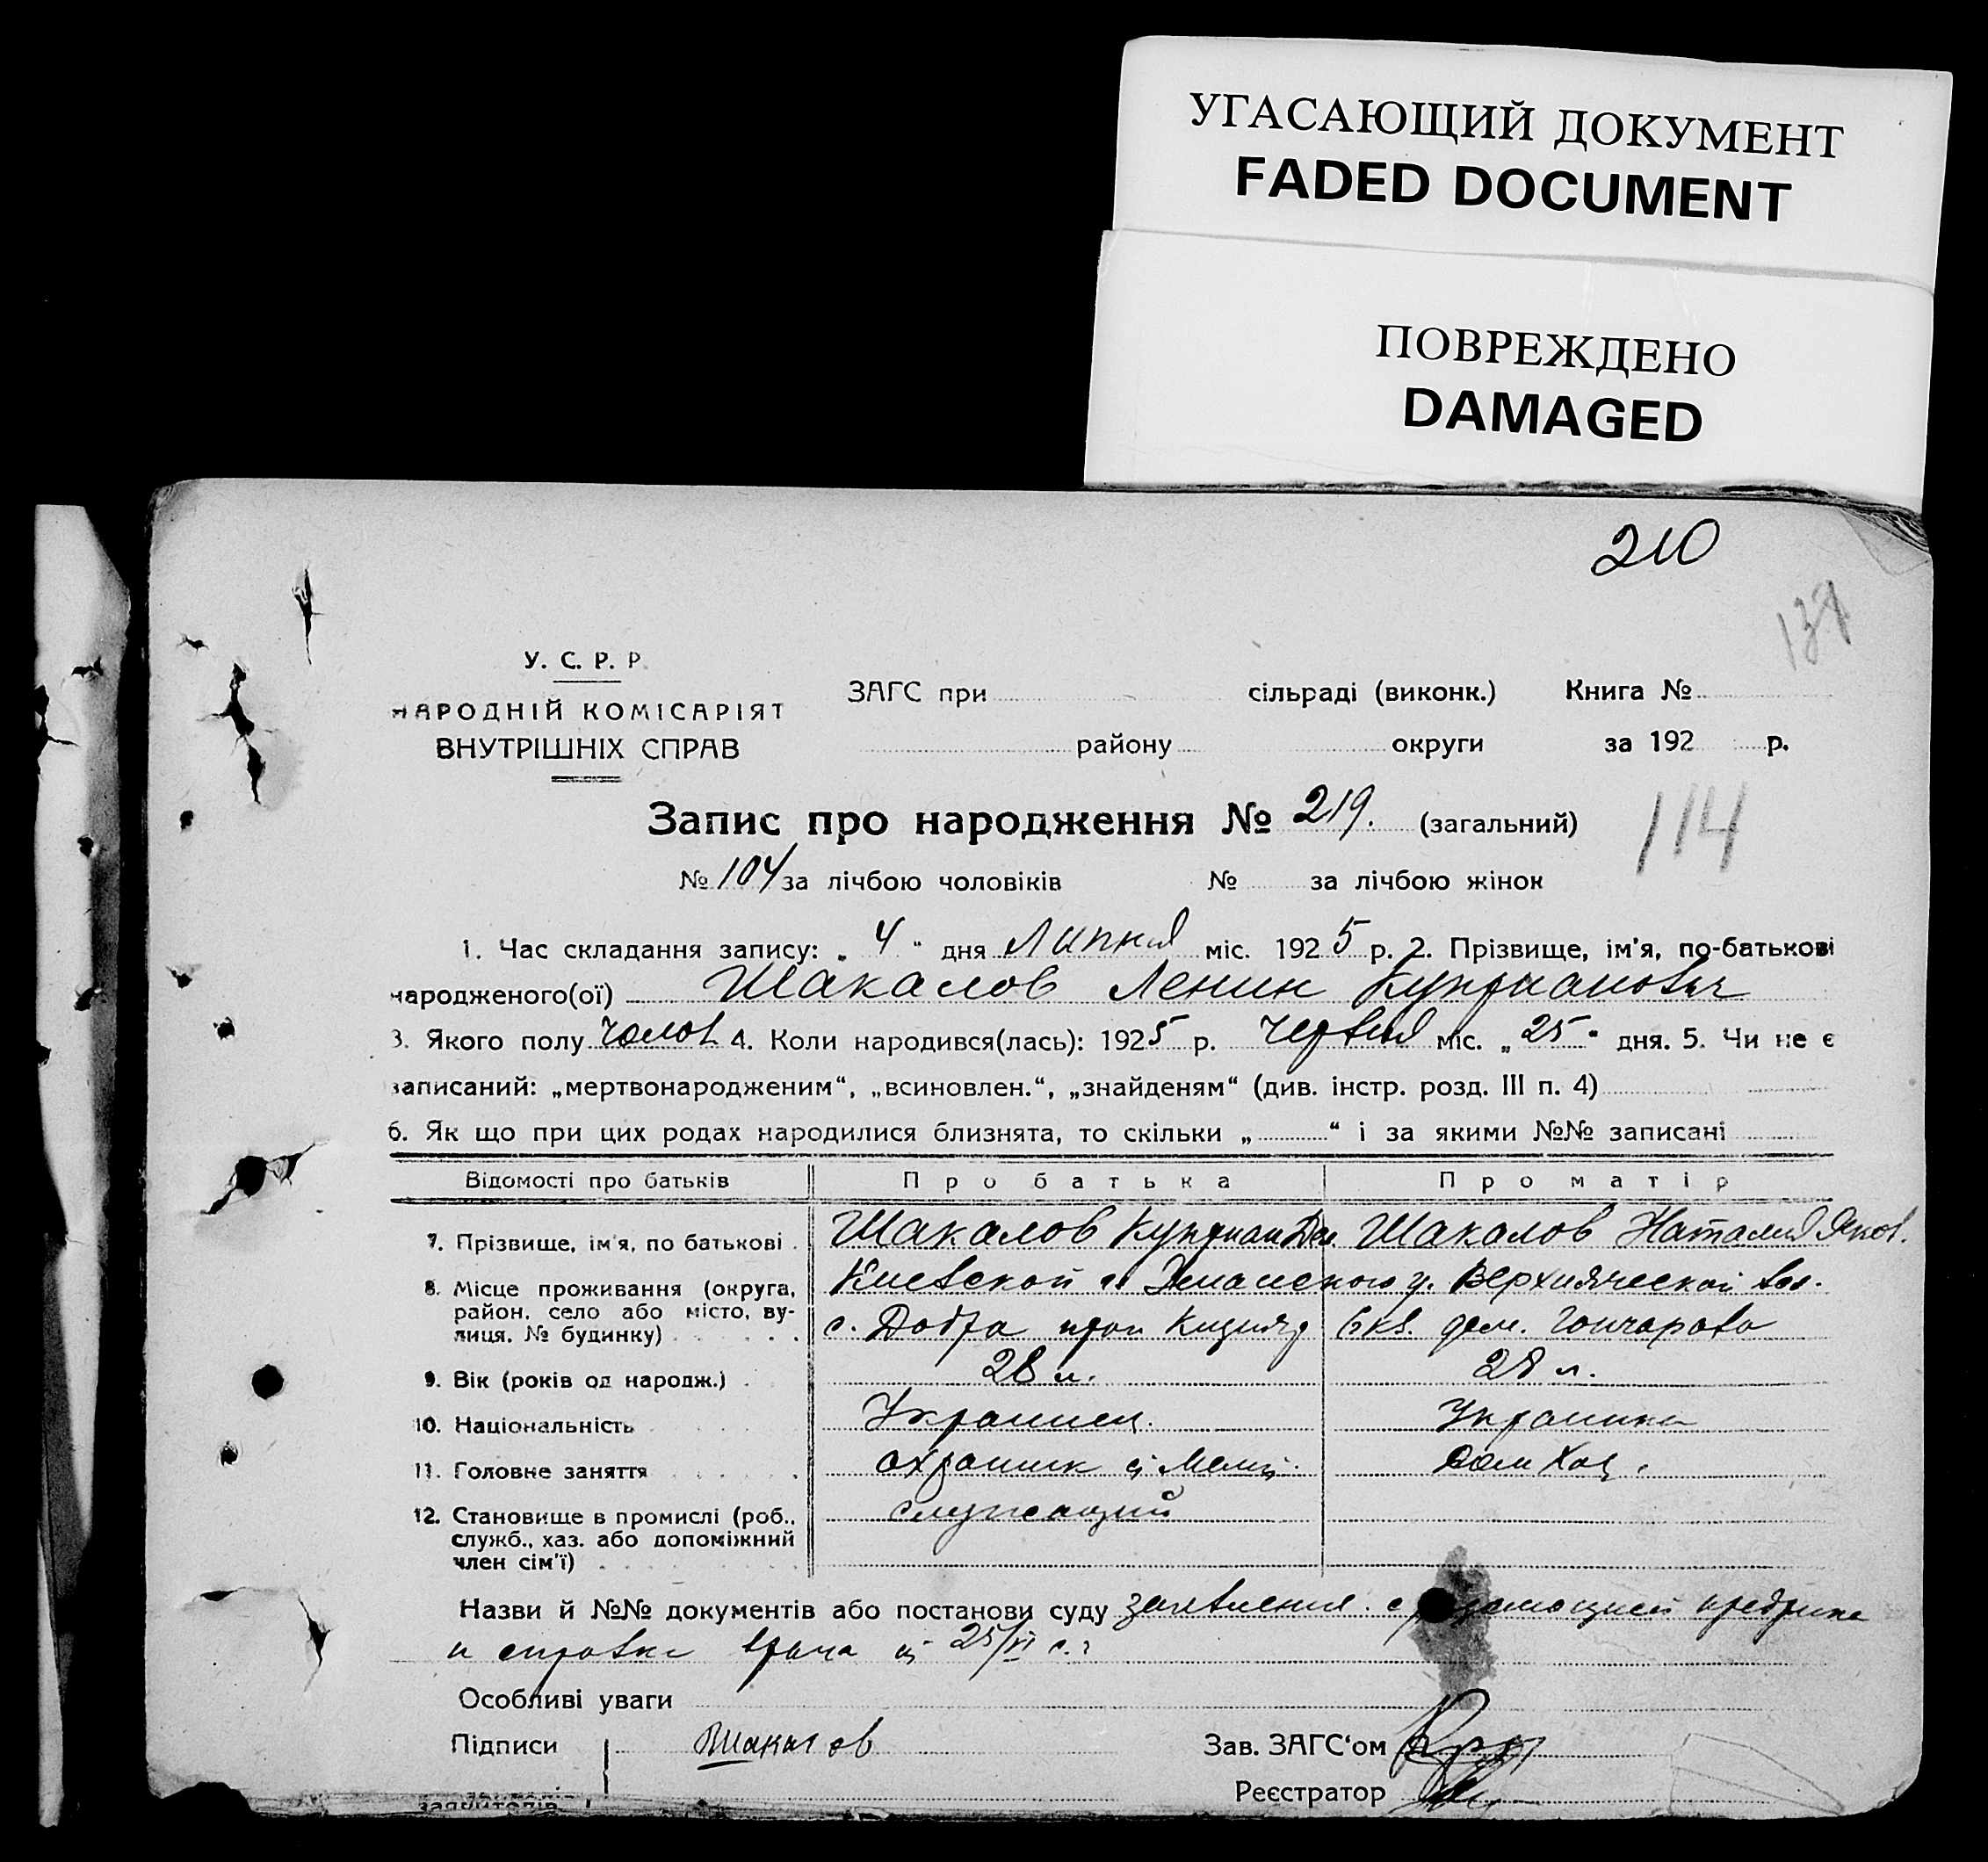 УГАСАЮЩИЙ ДОКУМЕНТ
FADED DOCUMENT
ПОВРЕЖДЕНО
DAMAGED
210
137
У. С. Р. Р.
НАРОДНІЙ КОМІСАРІЯТ
ВНУТРІШНІХ СПРАВ
ЗАГС при сільраді (виконк.) Книга №
району округи за 192 р.
Запис про народження № 219. (загальний)
114
№ 104 за лічбою чоловіків № за лічбою жінок
1. Час складання запису: „ 4 “ дня Липня міс. 1925 р. 2. Прізвище, ім'я, по-батькові
народженого(ої) Шакалов Ленин Куприанович
3. Якого полу чолов 4. Коли народився(лась): 1925 р. Червня міс. „ 25 “ дня. 5. Чи не є
записаний: „мертвонародженим“, „всиновлен.“, „знайденям“ (див. інстр. розд. III п. 4)
6. Як що при цих родах народилися близнята, то скільки „ “ і за якими №№ записані
Відомості про батьків Про батька Про матір
7. Прізвище, ім'я, по батькові Шакалов Куприан Шакалов Наталия Яков.
8. Місце проживання (округа, Киевской г. Уманского у. Верхняческой вол.
район, село або місто, ву-
лиця. № будинку) с. Добра 6 кв. дом. Гончарова
9. Вік (років од народж.) 28 л. 28 л.
10. Національність Украинец. Украинка
11. Головне заняття охранник Дом Хоз.
12. Становище в промислі (роб., служащий
служб., хаз. або допоміжний
член сім'ї)
Назви й №№ документів або постанови суду заявления. с
и справки врача от 25/VI с. г
Особливі уваги
Підписи Шакалов Зав. ЗАГС'ом
Реєстратор
заявителів